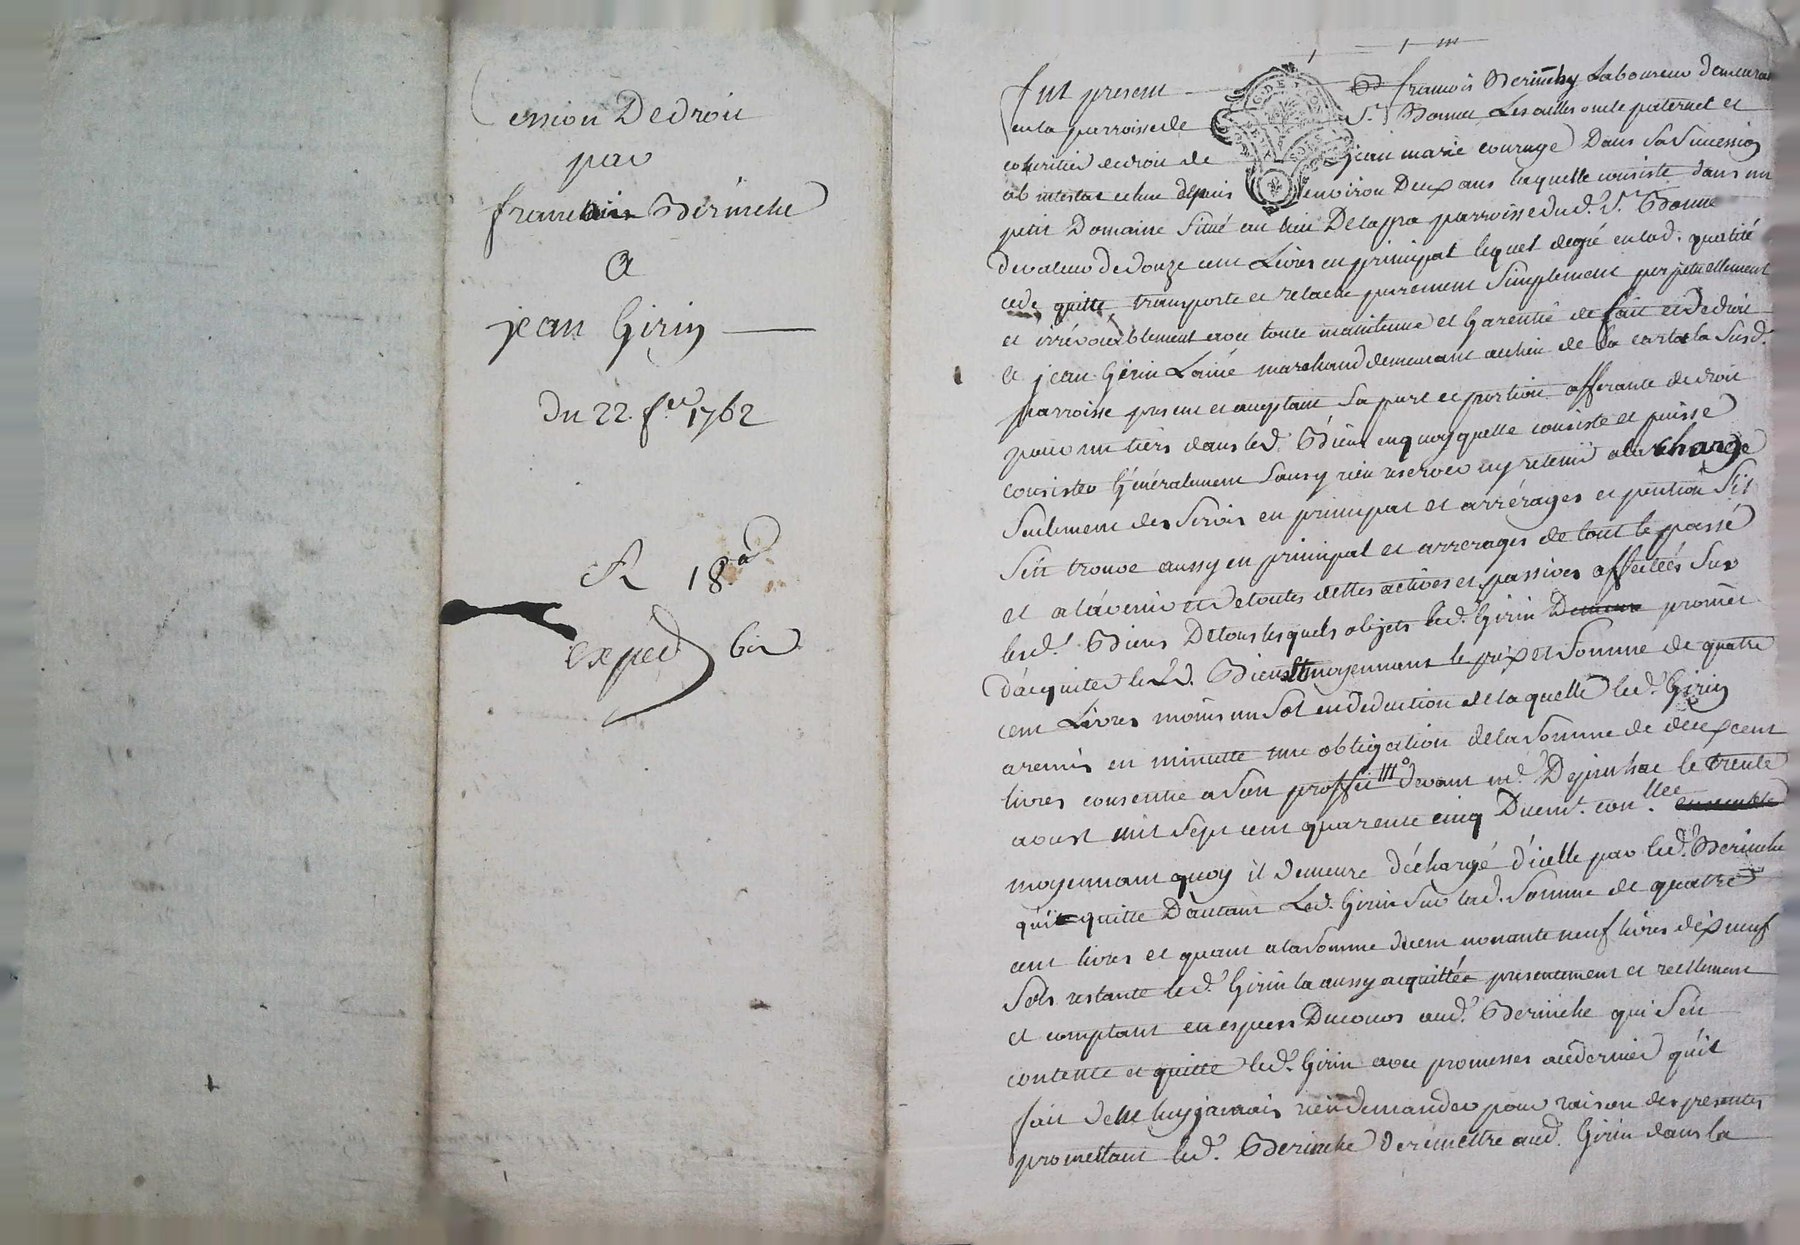 Cession De droit
par
francois Bériche
A
jean Girin
du 22 f.er 1762
R 18
exped bis
fut present francois Beriche Laboureur demeurant
en la parroisse de St Bonnet Les oulles oncle paternel et
coheritier de droit de jean marie courage Dans sa sucession
ab intestat echue depuis environ Deux ans laquelle consiste dans un
petit Domaine situé au lieu De lappa parroisse dud. St Bonnet
de valeur de Douze cent Livres en principal lequel de gré en lad. qualité
cede quitte transporte et relache purement Simplement perpetuellement
et irrévocablement avec toute maintenue et Garentie de fait et de droit
a jean Girin Lainé marchand demeurant au lieu de la susd.
parroisse present et acceptant sa part et portion afferante de droit
pour un tiers dans lesd. Biens en quoy quelle consiste et puisse
consister Généralement sans y rien reserver ny retenir a la charge
Seulement des servis en principal et arrérages et pention s'il
s'en trouve aussy en principal et arrerages de tout le passé
et a l'avenir et de toutes dettes actives et passives affectées sur
lesd. Biens De tous lesquels objets led. Girin promet
d'acquiter lesd. Biens et moyennant le prix et somme de quatre
cent Livres moins un sol en deduction de laquelle led. Girin
a remis en minutte une obligation de la somme de deux cent
livres consentie a son proffit devant me. le trente
aoust mil sept cent quarente cinq Duem.t con.llee
moyennant quoy il demeure déchargé d'icelle par led. Beriche
qui quitte D'autant Led. Girin sur lad. somme de quatre
cent livres et quant a la somme de cent nonante neuf livres dix neuf
sols restante led. Girin la aussy acquittée presentement et reellement
et comptant en especes Du cours aud. Beriche qui s'en
contente et quitte led. Girin avec promesses au dernier qu'il
fait de ne luy jamais rien demander pour raison des presentes
promettant led. Beriche de remettre aud. Girin dans la